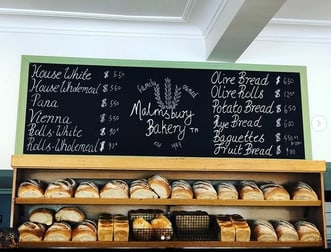 House White $ 5.50
House Wholemeal $ 5.50
Pana $ 5.50
Vienna $ 5.50
Rolls-White $ .90
Rolls-Wholemeal $ .90
family owned
Malmsbury
Bakery TM
est
Olive Bread $ 6.50
Olive Rolls $ 1.20
Potato Bread $ 6.50
Rye Bread $ 6.50
Baguettes $
Fruit Bread $